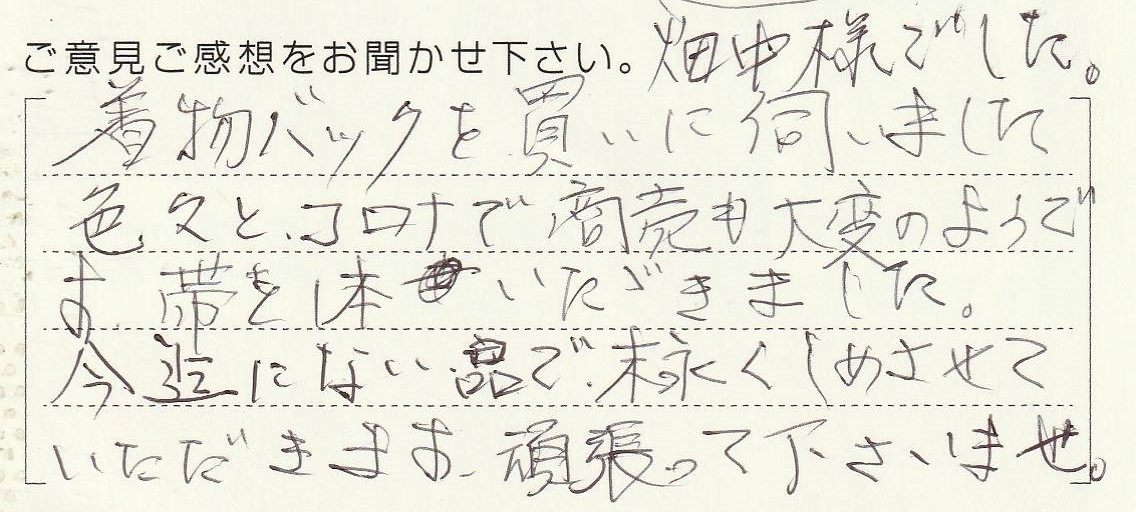 ご意見ご感想をお聞かせ下さい。畑中様でした。
着物バックを買いに伺いました
色々と、コロナで商売も大変のようで
す、帯を1本いただきました。
今迄にない品で、末永くしめさせて
いただきます、頑張って下さいませ。